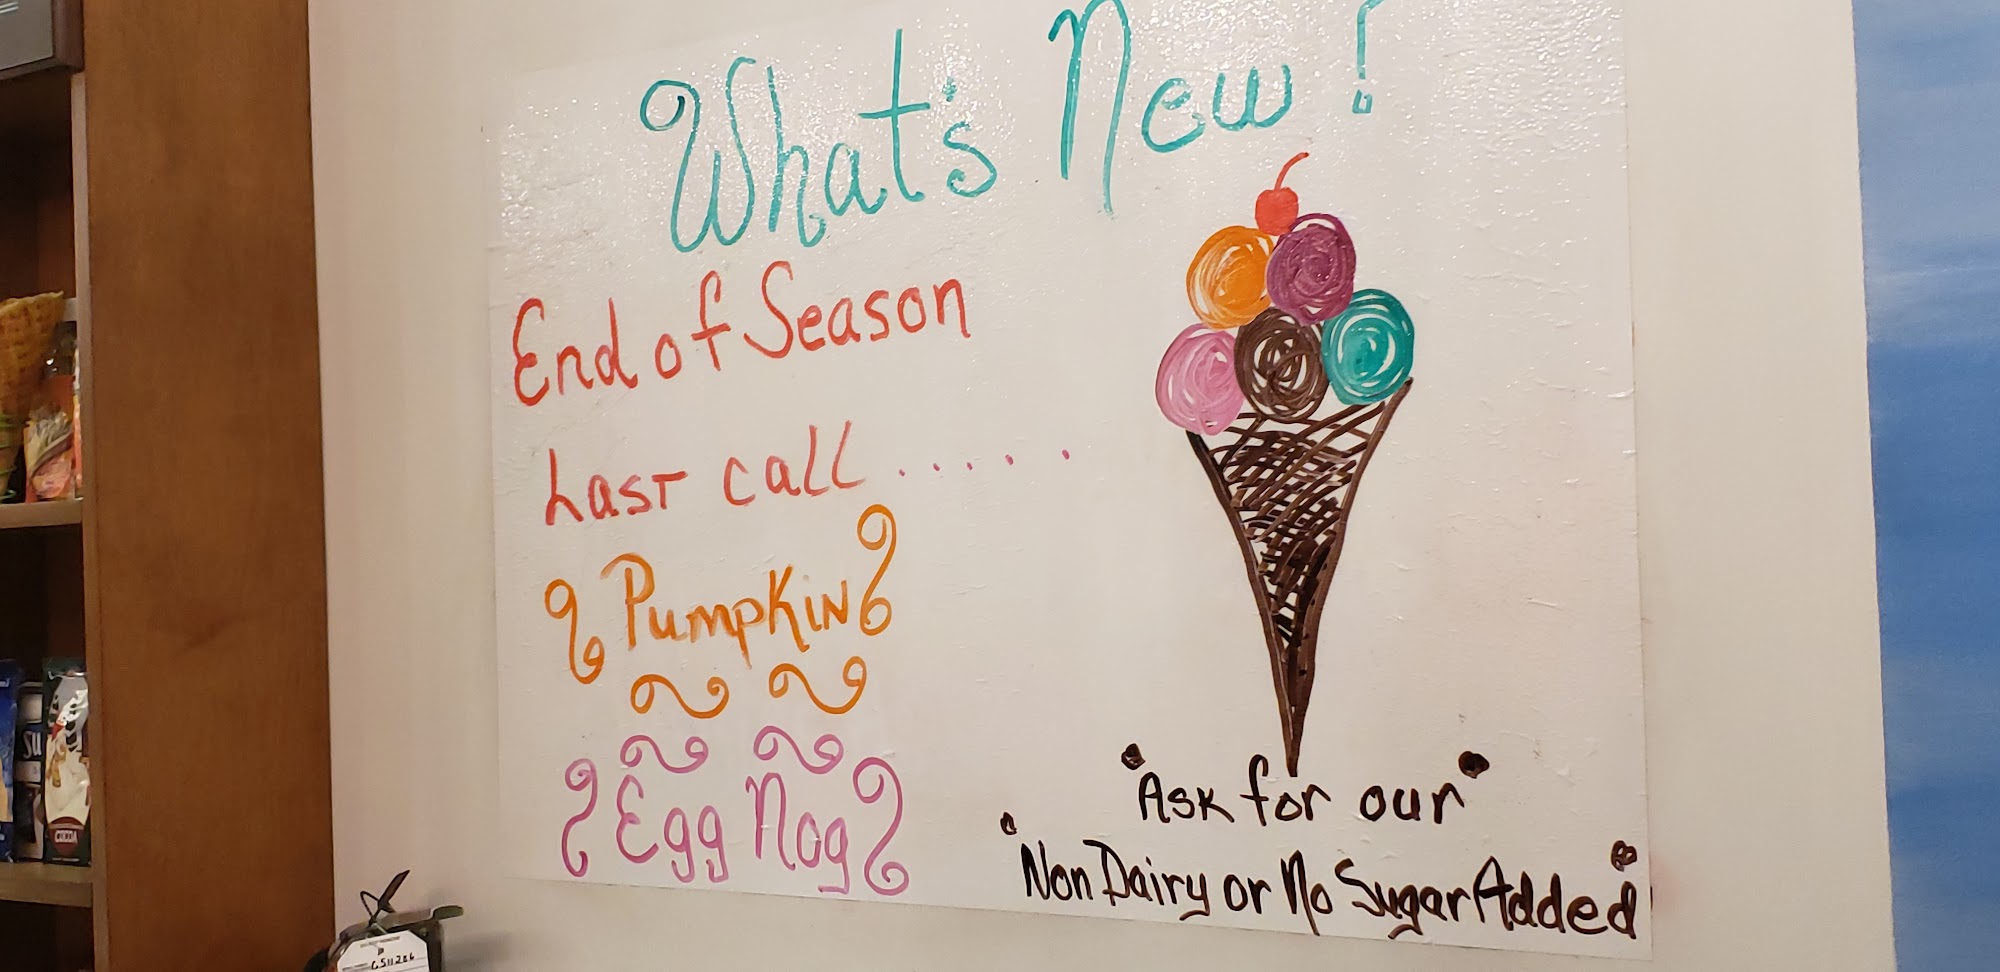 What's New!
End of Season
Last call.....
Pumpkin
Egg Nog
"Ask for our"
"Non Dairy or No Sugar Added"
SU